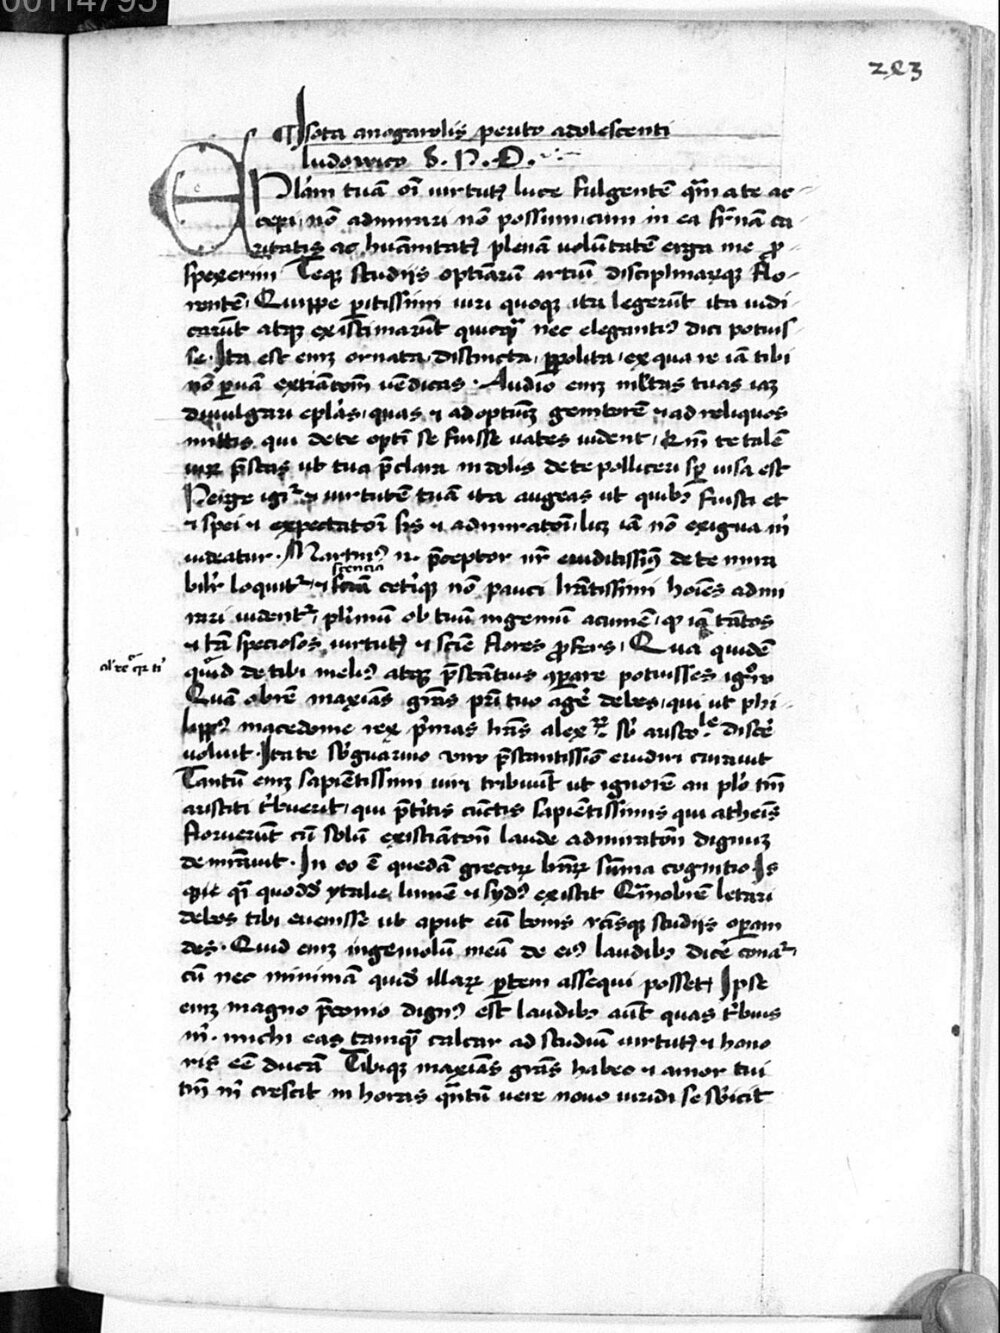 00114795
223
Isota anogarolis perito adolescenti
ludovico S. P. D.
EPl'am tuā oī virtutꝫ luce fulgentē quā a te ac-
cepi, nō admirari nō possum, cum in ea sūmā ca
ritatis ac huānitatꝫ plenā volūtatē erga me p̄-
spexerim Teqꝫ studijs optīarū artiū disciplinarꝫqꝫ flo-
rentē, Quippe pitissimi viri quoqꝫ ita legerūt ita iudi
carūt atqꝫ existimarūt quicqꝫ nec elegantiꝰ dici potuis
se. Ita est enīꝫ ornata, distincta, ppolita, ex qua re iā tibi
nō puā extiātōm vēdicas. Audio enīꝫ mltas tuas iaꝫ
divulgari epl'as, quas ⁊ ad optimꝫ genitorē ⁊ ad reliquos
mittis qui de te optī se fuisse vates vident,
ut tua p̄clara indolis de te polliceri sp̄ visa est
Perge igr̄ ⁊ virtutē tuā ita augeas ut quibꝫ fuisti et
⁊ spei ⁊ expectatōī sis ⁊ admiratōī, lꝫ iā nō exigua m̄
videatur. Martinꝰ n. p̄ceptor nr̄ eruditissimꝰ de te mira
scencia
bilr̄ loquitr̄ ⁊ nō pauci lrātissimi hoīes admi
rari videntr̄, pl'imū ob tuū ingeniū acumē, ꝙ iā tātos
⁊ tā speciosos virtutꝫ ⁊ sciē flores pfers, Qua quidē
quid de tibi meliꝰ atqꝫ p̄stātius ꝯparare potuisses ignōro
Quā obrē maxīas grās pri tuo agē debes, qui ut phi-
lippꝰ macedonie rex p̄mas lrās alexr̄ sb̄ aristole discē
voluit. Ita te sb̄ guarino viro p̄stantissio erudiri curavit
Tantū enīꝫ sapiētissimi viri tribuūt ut ignorē an plo tm̄
aristiti t'buerit, qui p̄titis cūctis sapiētissimis qui atheīs
floruerūt cū solū existiātōī laude admiratōī dignuꝫ
demr̄avit. In eo ē quedā grecorꝫ lrārꝫ sūma cognitio Is
que qī quoddā ytalie lumē ⁊ sydꝰ existit Quāobrē letari
debes tibi evenisse ut aput eū bonis rctisqꝫ studijs operam
des. Quid enīꝫ ingeniolū meū de eiꝰ laudibꝫ dicē conar̄
cū nec minimā quidē illarꝫ ptem assequi posset, Ipse
enīꝫ magno p̄conio dignꝰ est laudibꝫ aūt quas t'buis
m̄. michi eas tamqꝫ calcar ad studiū virtutꝫ ⁊ hono
ris eē ducā Tibiqꝫ maxīas grās habeo ⁊ amor tui
tm̄ m̄ crescit in horas quātū vere novo viridi se sb̄icit